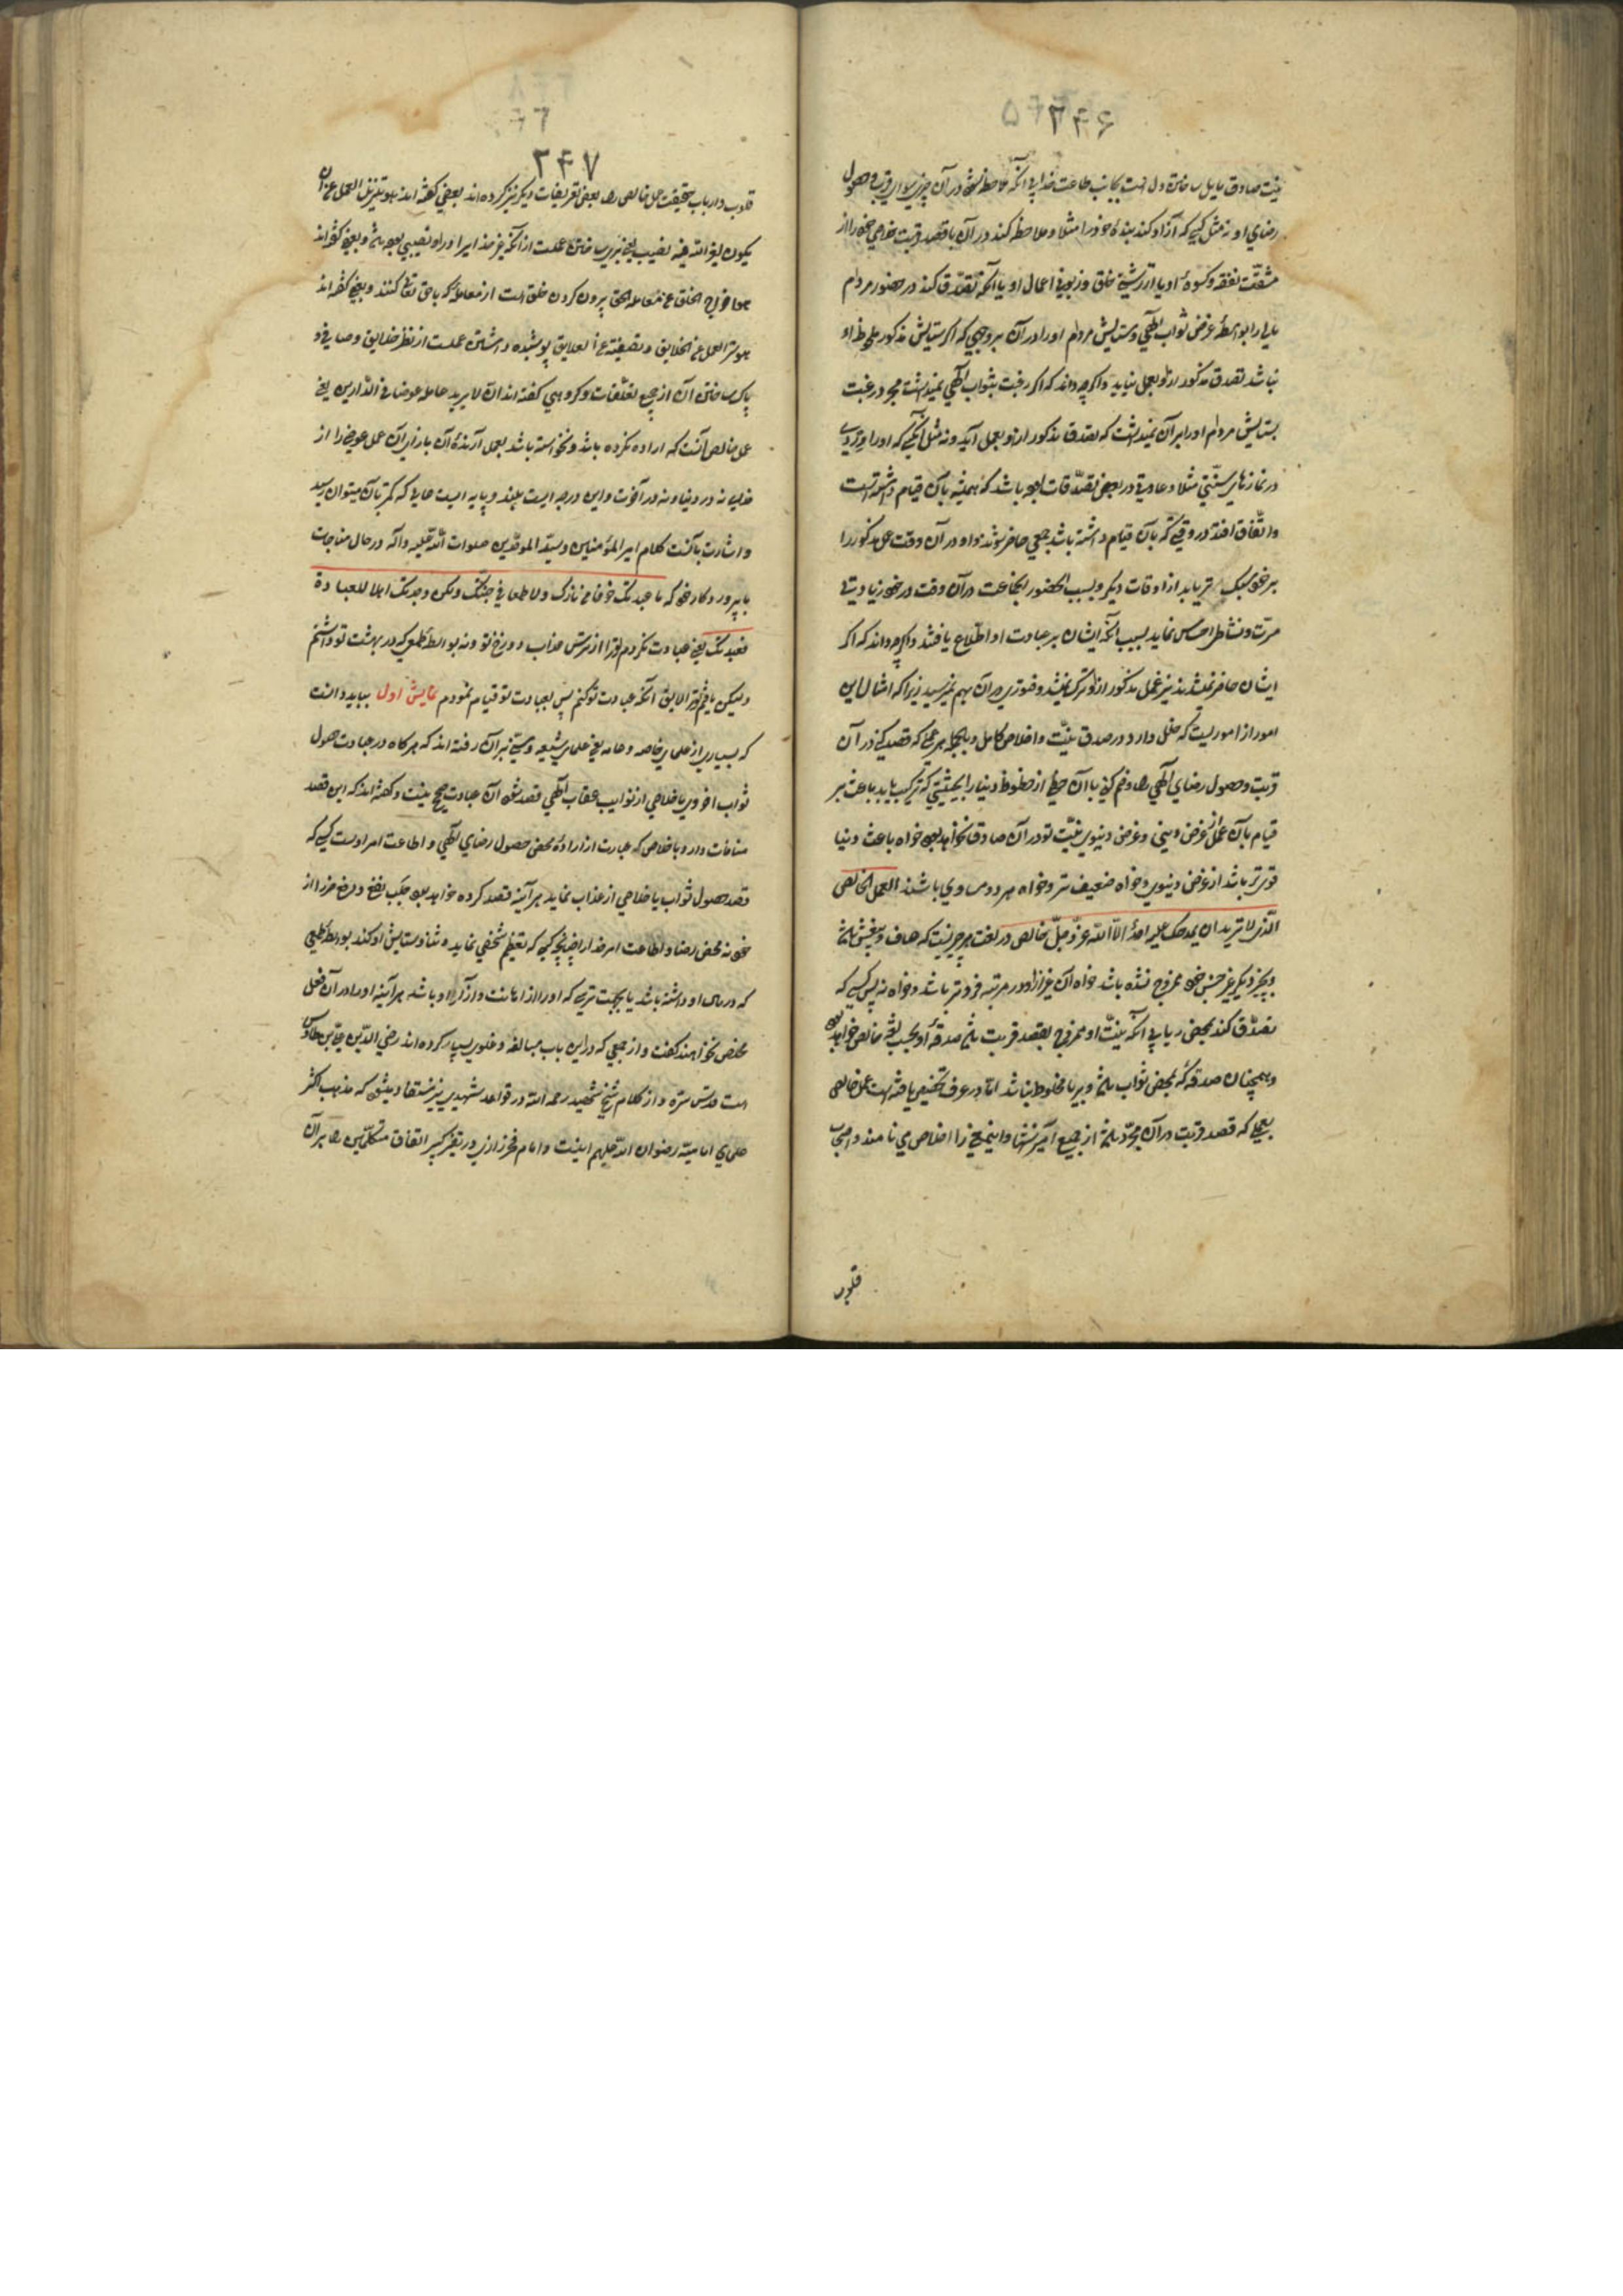 ۲۴۶
نیت صادق مایل ساختن دل است بجانب طاعت خدایی آنکه ملاحظه نشود در آن چیزی سوای قربت و حصول
رضای او نه مثل کسی که آزاد کند بنده خود را مثلا و ملاحظه کند در آن با قصد قربت خلاصی خود را از
مشقت نفقه و کسوه او یا از خلق و زبونی اعمال او یا آنکه تصدق کند در حضور مردم
بواسطه غرض ثواب الهی و ستایش مردم او را در آن بروجهی که اگر ستایش مذکور ملحوظ او
نباشد تصدق مذکور ازو بعمل نیاید و اگرچه داند که اگر رغبت بثواب الهی نمیداشت مجرد رغبت
بستایش مردم او را بر آن نمیداشت که تصدق مذکور ازو بعمل آید و نه مثل آنکسی که او را وردی
در نمازهای سنتی مثلا و عادتی در بعضی تصدقات بوده باشد که همیشه بآن قیام داشته است
و اتفاق افتد در وقتی که بآن قیام داشته باشد جمعی حاضر شوند و او در آن وقت عمل مذکور را
بر خود سبک تر یابد از اوقات دیگر و بسبب حضور آنجماعت در آن وقت در خود زیادتی
مسرت و نشاط احساس نماید بسبب آنکه ایشان بر عبادت او اطلاع یافتند و اگرچه داند که اگر
ایشان حاضر نمیشدند نیز عمل مذکور ازو ترک نمیشد و فتوری در آن بهم نمیرسید زیرا که امثال این
امور از اموریست که خلل دارد در صدق نیت و اخلاص کامل و بالجمله هر عملی که قصد کنی در آن
قربت و حصول رضای الهی را و ضم کنی با آن حظی از حظوظ دنیا را بحیثیتی که ترکیب یابد باعث بر
قیام بآن عمل از غرض دینی و غرض دنیوی نیت تو در آن صادق نخواهد بود خواه باعث دنیا
قویتر باشد از غرض دنیوی و خواه ضعیف تر و خواه هر دو مساوی باشند العمل الخالص
الذی لا ترید ان یمدحک علیه احد الا الله عز و جل خالص در لغت هر چیزیست که صاف و بیغش باشد
و بچیز دیگر غیر جنس خود ممزوج نشده باشد خواه آن غیر ازو در مرتبه فروتر باشد و خواه نه پس کسی که
تصدق کند بمحض ریا بی آنکه نیت او ممزوج بقصد قربت باشد صدقه او بحسب لغت خالص خواهد بود
و همچنان صدقه که بمحض ثواب باشد و بریا مخلوط نباشد اما در عرف تخصیص یافته است عمل خالص
بعملی که قصد قربت در آن مجرد باشد از جمیع آمیزشها و اینمعنی را اخلاص می نامند و اصحاب
قلوب
۲۴۷
قلوب و ارباب حقیقت عمل خالص را بعضی تعریفات دیگر نیز کرده اند بعضی گفته اند هو تنزیه العمل عن ان
یکون لغیر الله فیه نصیب یعنی بری ساختن عملست از آنکه غیر خدا را در او نصیبی بوده باشد و بعضی گفته اند
هو اخراج الخلق عن معامله الحق بیرون کردن خلق است از معامله که با حق تعالی کنند و بعضی گفته اند
هو ستر العمل عن الخلایق و تصفیته عن العلایق پوشیده داشتن عملست از نظر خلایق و صافی و
پاک ساختن آن از جمیع تعلقات و گروهی گفته اند ان لا یرید عامله عوضا فی الدارین یعنی
عمل خالص آنست که اراده نکرده باشد و نخواسته باشد بعمل آرنده آن بازای آن عمل عوضی را از
خدای نه در دنیا و نه در آخرت و این درجه ایست بلند و پایه ایست عالی که کمتر بآن میتوان رسید
و اشارت بآنست کلام امیر المؤمنین و سید الموحدین صلوات الله علیه و آله در حال مناجات
با پروردگار خود که ما عبدتک خوفا من نارک و لا طمعا فی جنتک ولکن وجدتک اهلا للعبادة
فعبدتک یعنی عبادت نکردم ترا از ترس عذاب دوزخ تو و نه بواسطه طمعی که در بهشت تو داشتم
ولیکن یافتم ترا لایق آنکه عبادت تو کنم پس بعبادت تو قیام نمودم نمایش اول بباید دانست
که بسیاری از علمای خاصه و عامه یعنی علمای شیعه و سنی بر آن رفته اند که هرگاه در عبادت حصول
ثواب اخروی یا خلاصی از عقاب الهی قصد شود آن عبادت صحیح نیست و گفته اند که این قصد
منافات دارد با اخلاص که عبارت از اراده محض حصول رضای الهی و اطاعت امر اوست کسی که
قصد حصول ثواب یا خلاصی از عذاب نماید هر آینه قصد کرده خواهد بود جلب نفع و دفع ضرر از
خود نه محض رضا و اطاعت امر خدا را چنانچه کسی که تعظیم شخصی نماید و ثنا و ستایش او کند بواسطه طمعی
که در مال او داشته باشد یا بجهت ترسی که او را از اهانت و آزار او باشد هر آینه او را در آن فعل
مخلص نخواهند گفت و از جمعی که در این باب مبالغه و غلو بسیار کرده اند رضی الدین علی بن طاوس
است قدس سره و از کلام شیخ شهید رحمه الله در قواعد شهیدی نیز مستفاد میشود که مذهب اکثر
علمای امامیه رضوان الله علیهم اینست و امام فخر رازی در تفسیر کبیر اتفاق متکلمین را بر آن